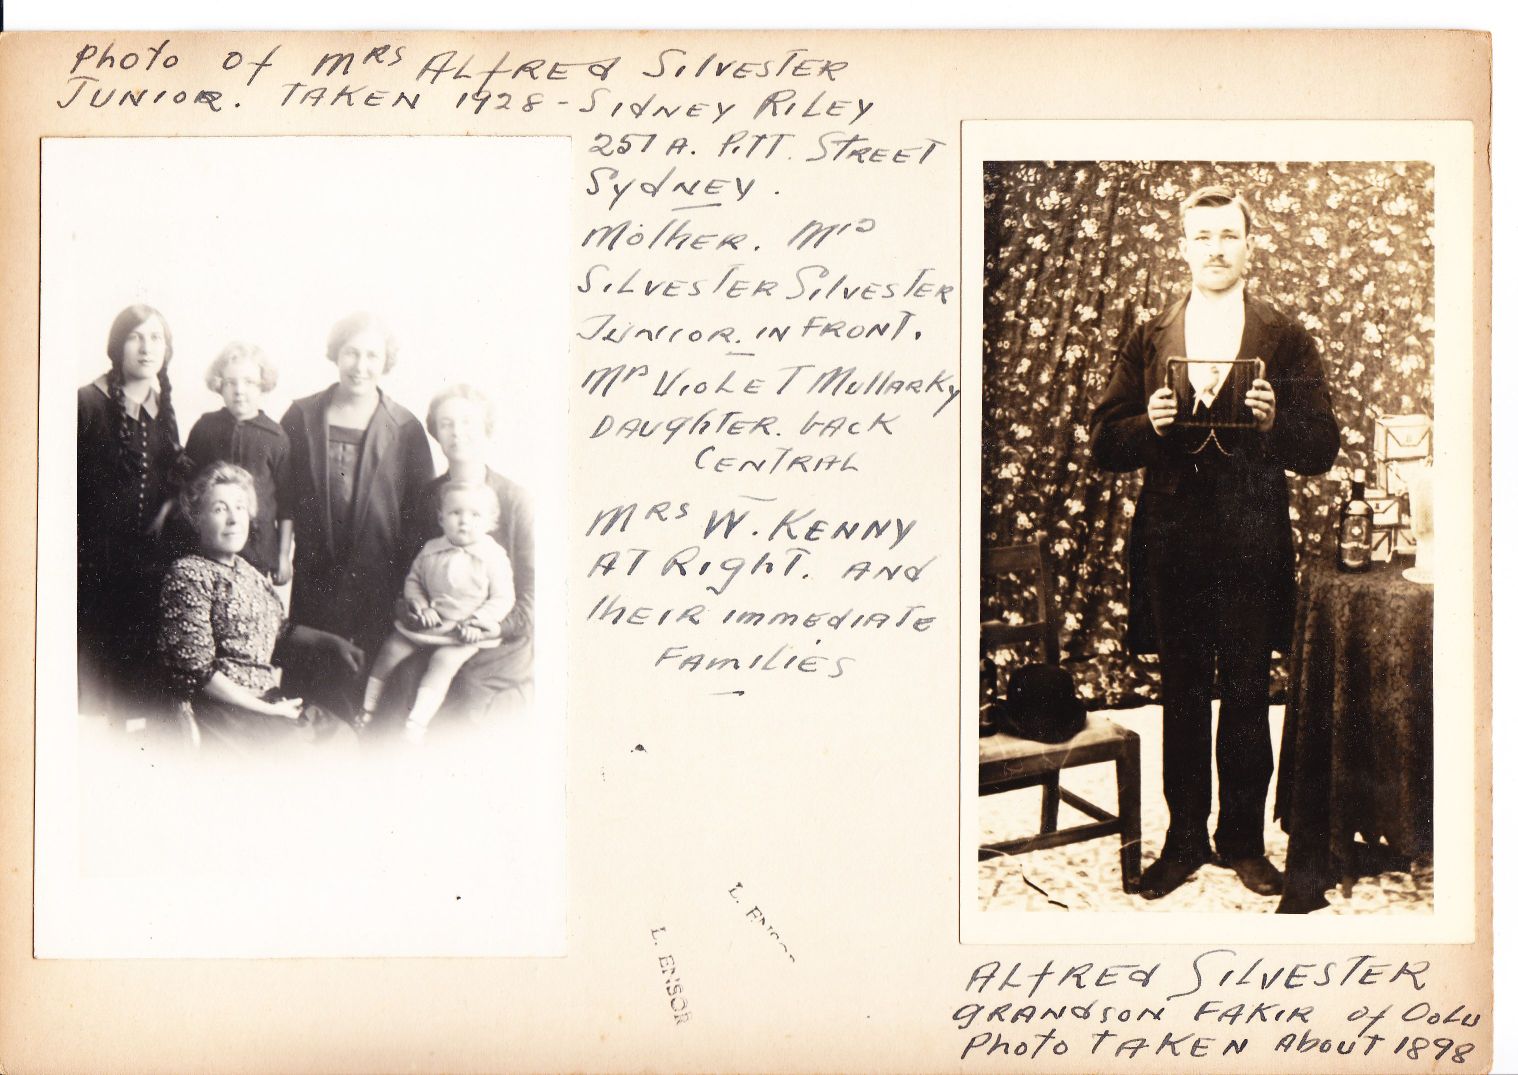 Photo of MRS ALfREd SilvESTER
JUNIOR. TAKEN 1928 - SidNEY RiLEY
257 A. PiTT. STREET
SydNEY.
MoThER. MRS
SiLVESTER SilvESTER
JUNIOR. IN FRONT.
MRS VioLET MullARKy
DAughTER. bACK
CENTRAL
MRS W. KENNY
AT RighT. ANd
ThEiR immEdiATE
FAmiliES
L. ENSOR
L. ENSOR
ALfREd SilvESTER
gRANdSON FAKIR of OoLu
Photo TAKEN AbouT 1898